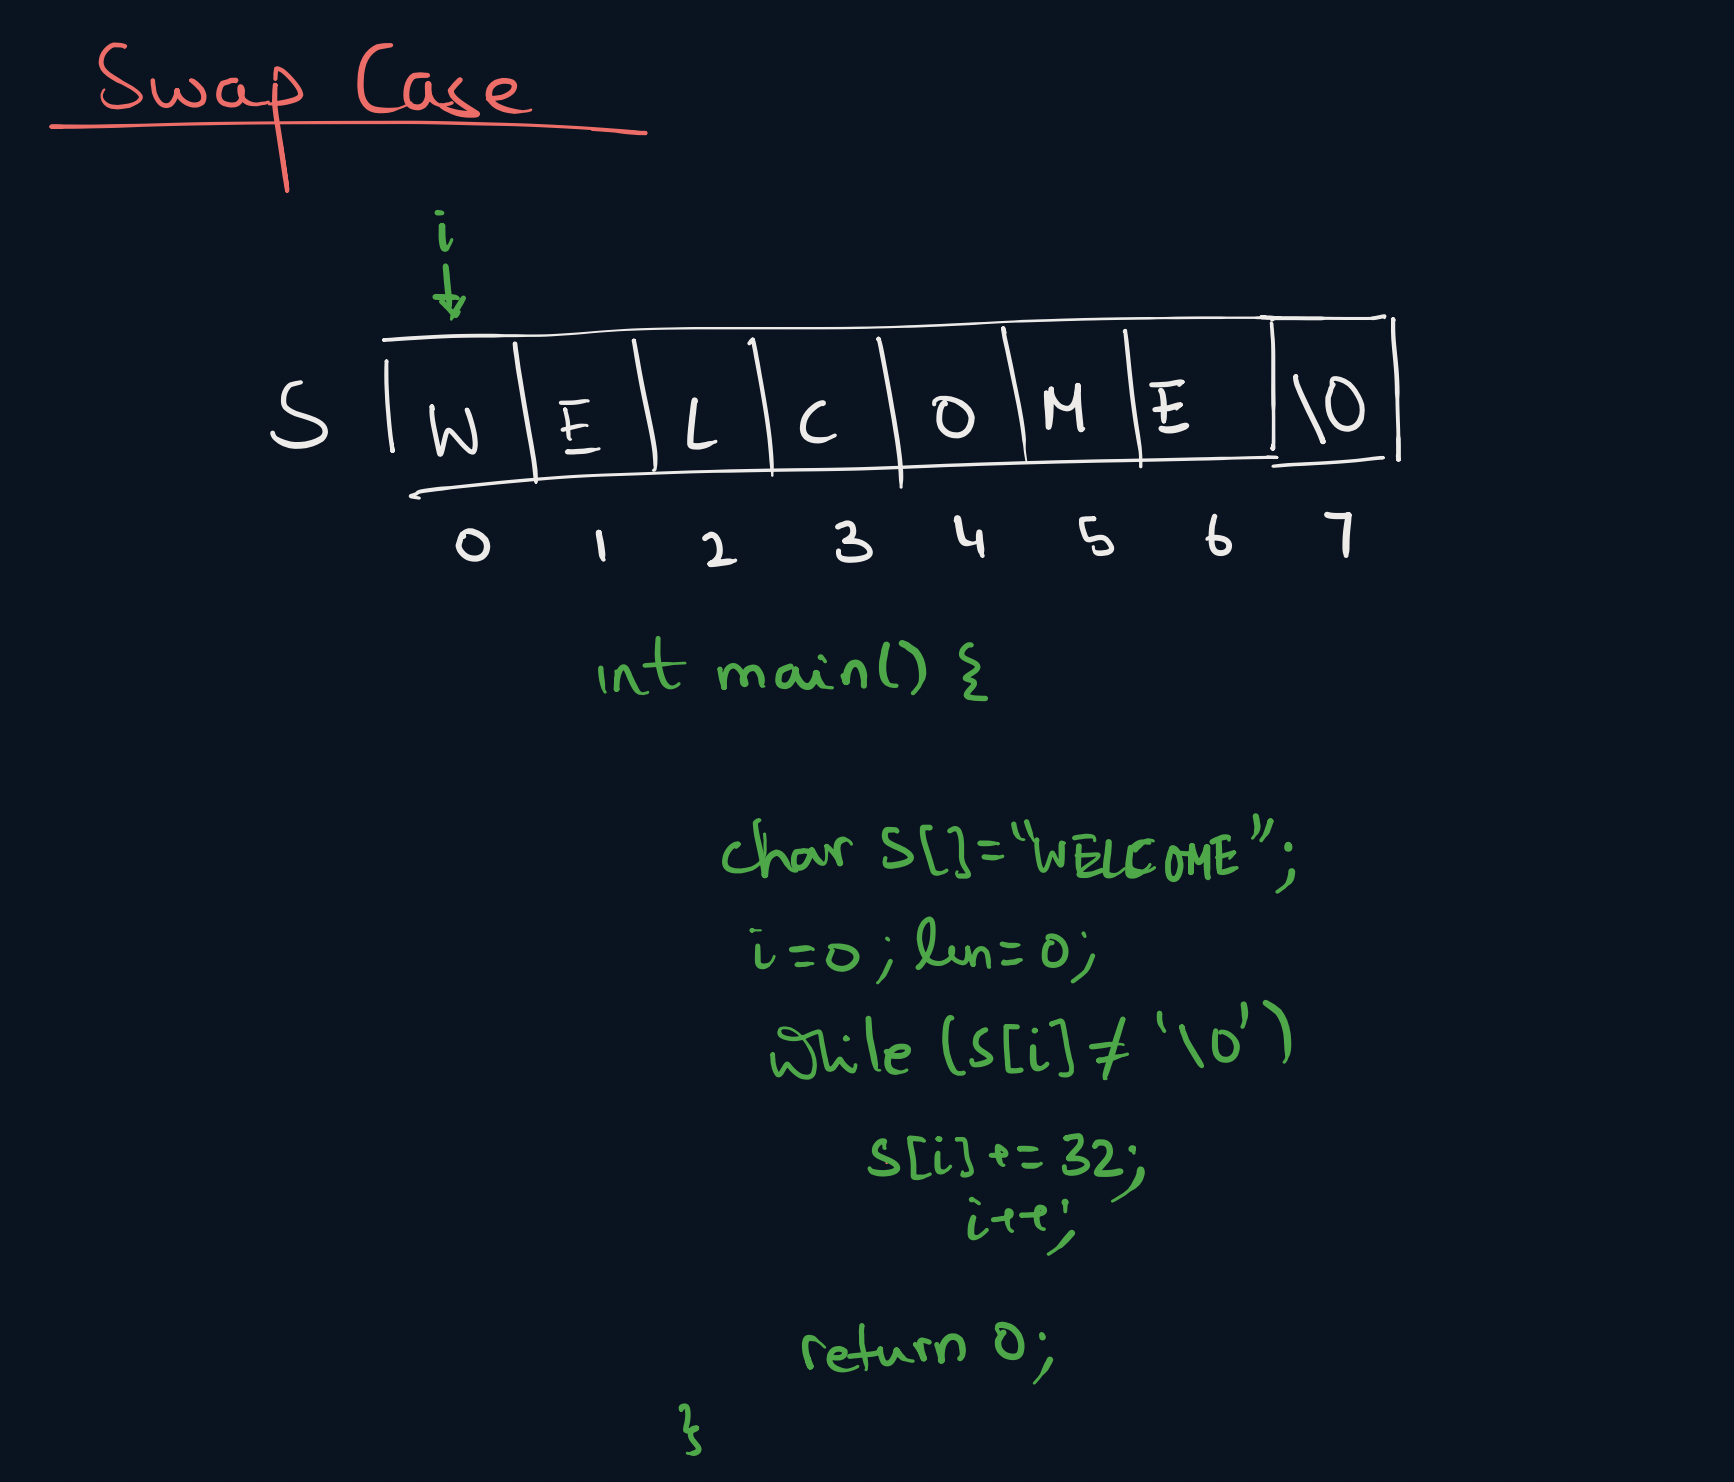 Swap Case
i
S W E L C O M E \0
0 1 2 3 4 5 6 7
int main() {
char S[]="WELCOME";
i=0; len=0;
while (S[i]≠'\0')
S[i]+=32;
i++;
return 0;
}